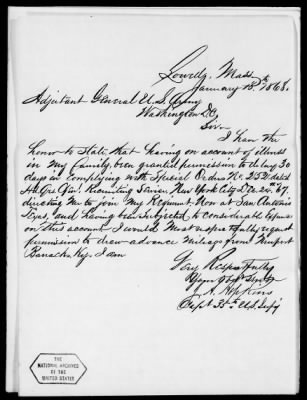 Lowell, Mass
January 18th 1868.
Adjutant General U.S. Army
Washington D.C.
Sir—
I have the
honor to State, that having on account of illness
in my family, been granted permission to delay 30
days in complying with Special Orders No 252 dated
Hd Qrs Gen'l Recruiting Service New York City Dec 24th '67.
directing me to join my Regiment. now at San Antonio
Texas, and having been subjected to considerable expense
on this account, I would most respectfully request
permission to draw advance Mileage from Newport
Barracks, Ky. I am
Very Respectfully
Your Obt Servt
A. Hopkins
Capt 35th U.S. Inf'y
THE
NATIONAL ARCHIVES
OF THE
UNITED STATES